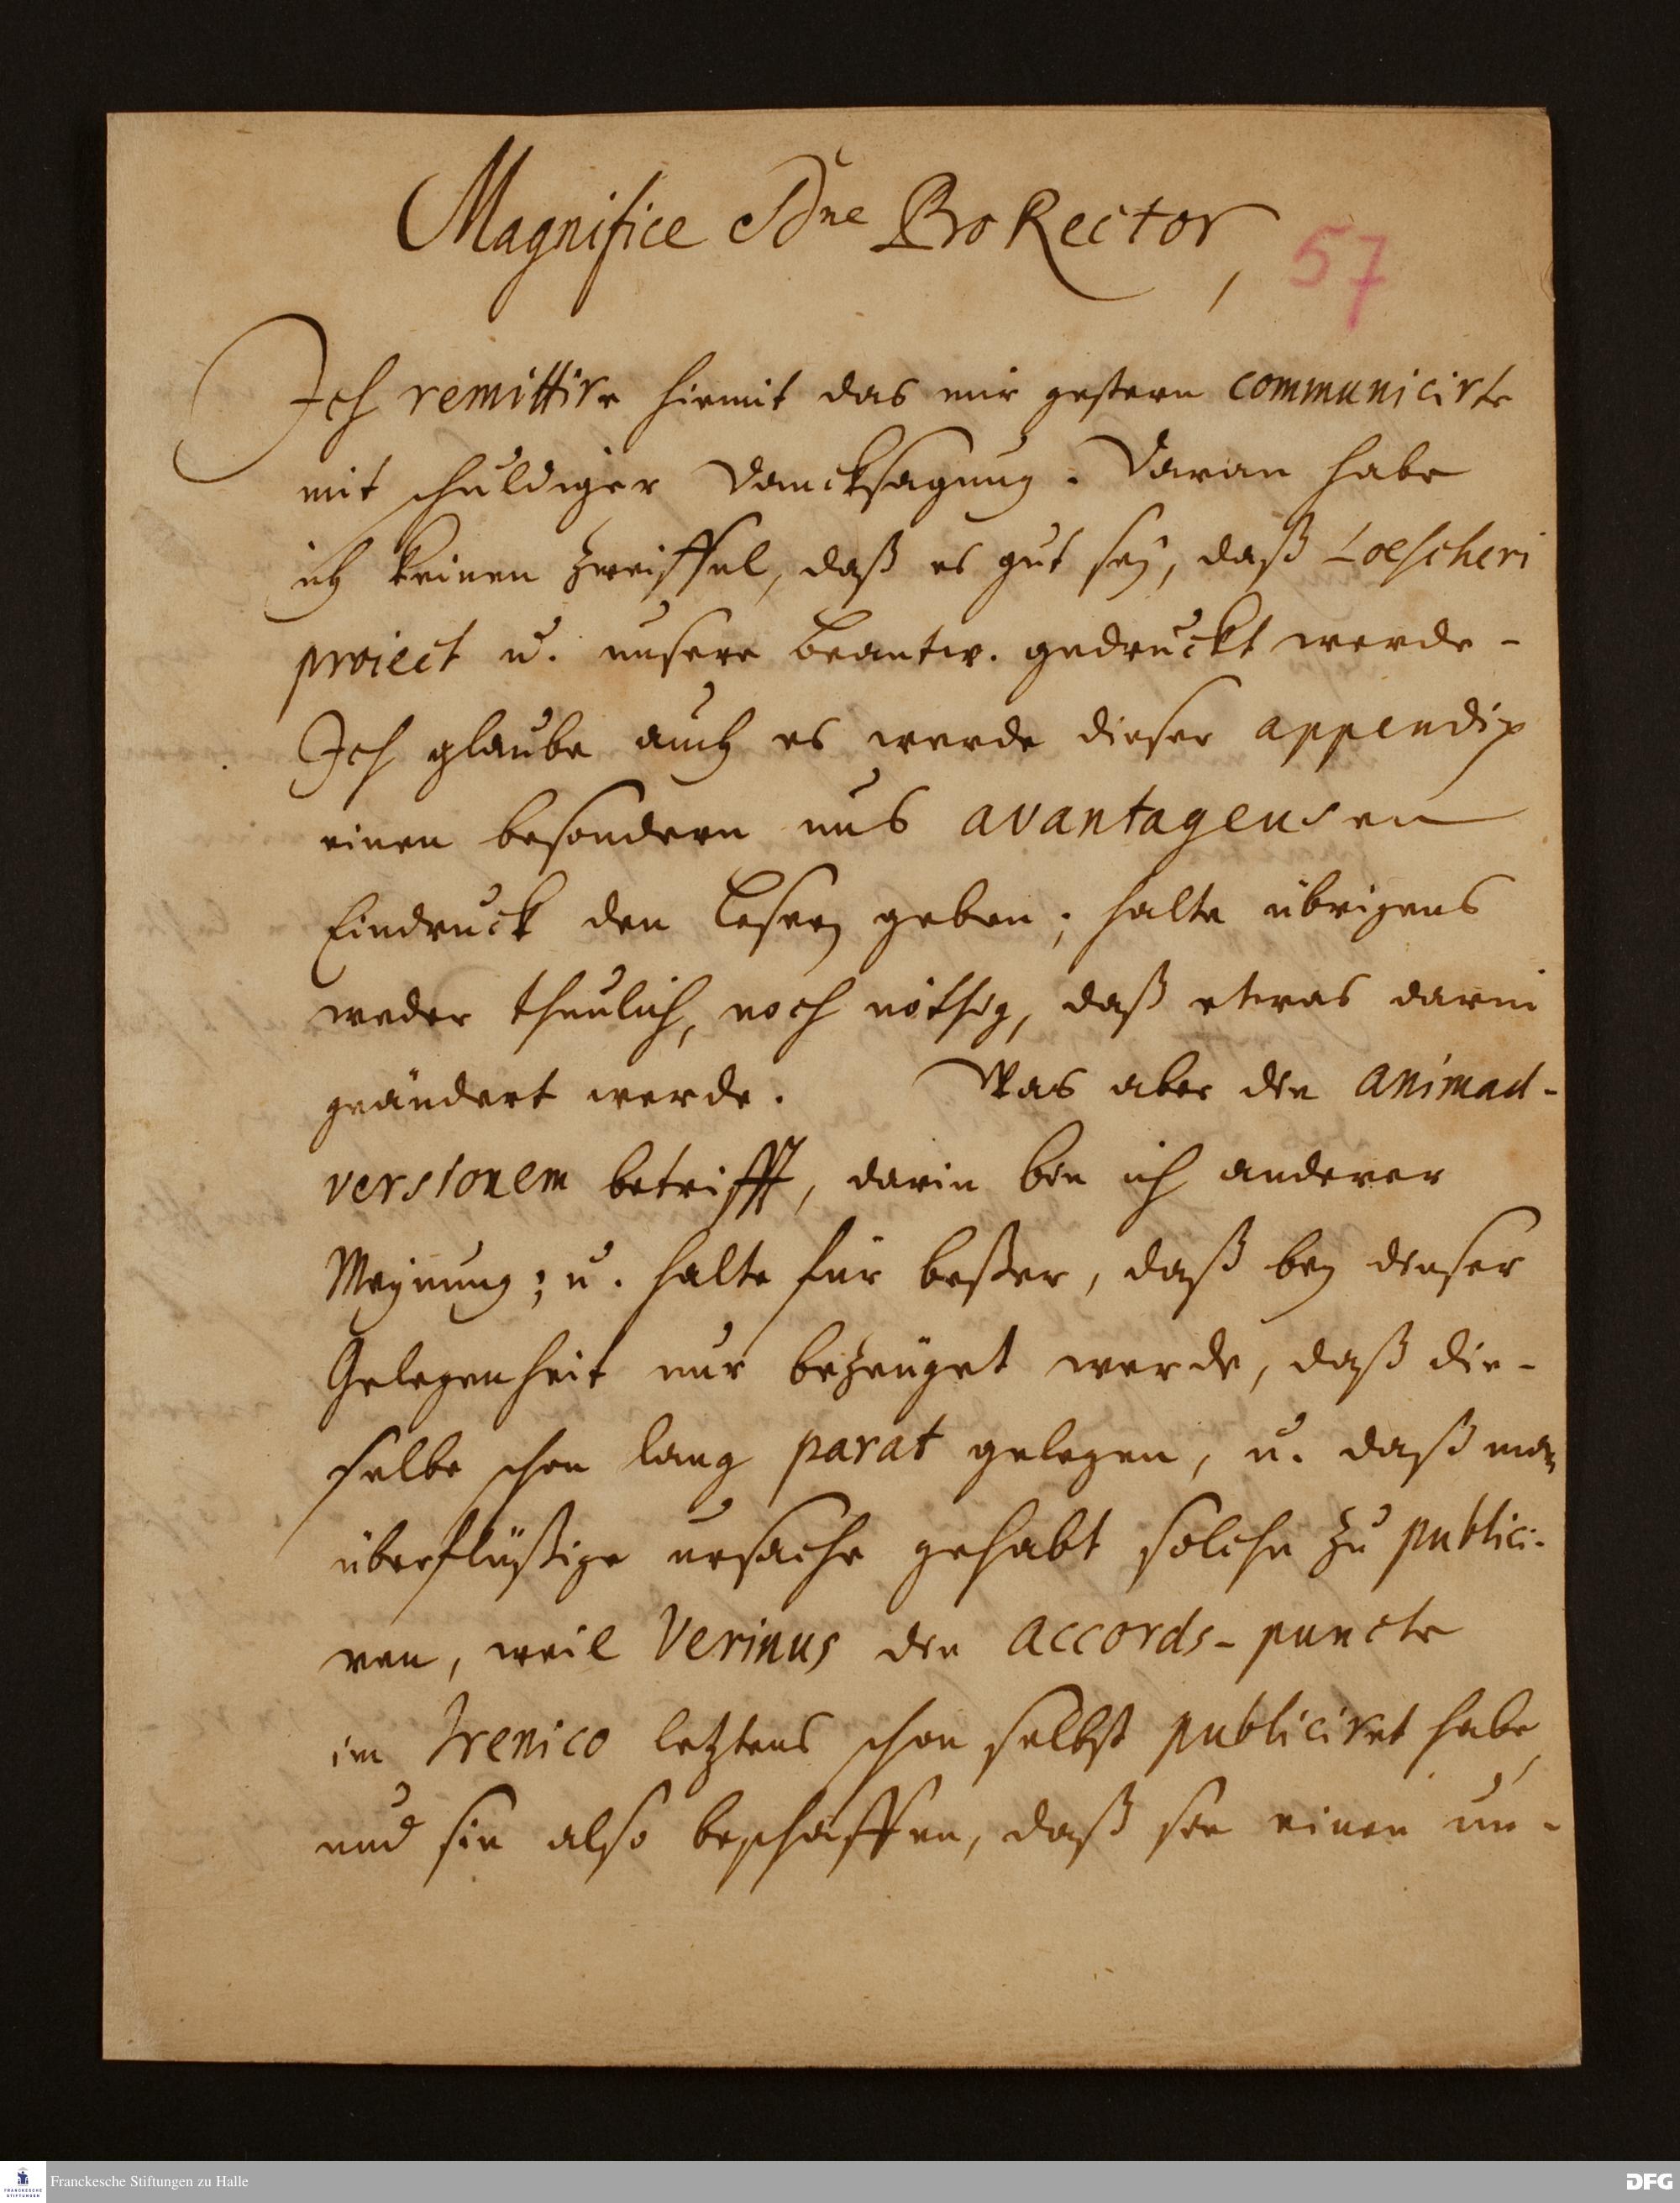 Magnifice Dne ProRector,
57
Ich remittire hiemit das mir gestern communicirte
mit schuldiger Dancksagung. Daran habe
ich keinen zweiffel, daß es gut seÿ, daß Loescheri
project u. unsere beantw. gedruckt werde -
Ich glaube auch es werde dieser appendix
einen besondern uns avantageusen
Eindruck den Lesern geben; halte übrigens
weder thunlich, noch nöthig, daß etwas darin
geändert werde. Was aber die animad-
versionem betrifft, darin bin ich anderer
Meynung; u. halte für beßer, daß bey dieser
Gelegenheit nur bezeuget werde, daß die-
selbe schon lang parat gelegen, u. daß man
überflüßige ursache gehabt solche zu publici-
ren, weil Verinus die accords-puncte
im Irenico letztens schon selbst publiciret habe,
und sie also beschaffen, daß sie einen un-
Franckesche Stiftungen zu Halle
FRANCKESCHE
STIFTUNGEN
DFG